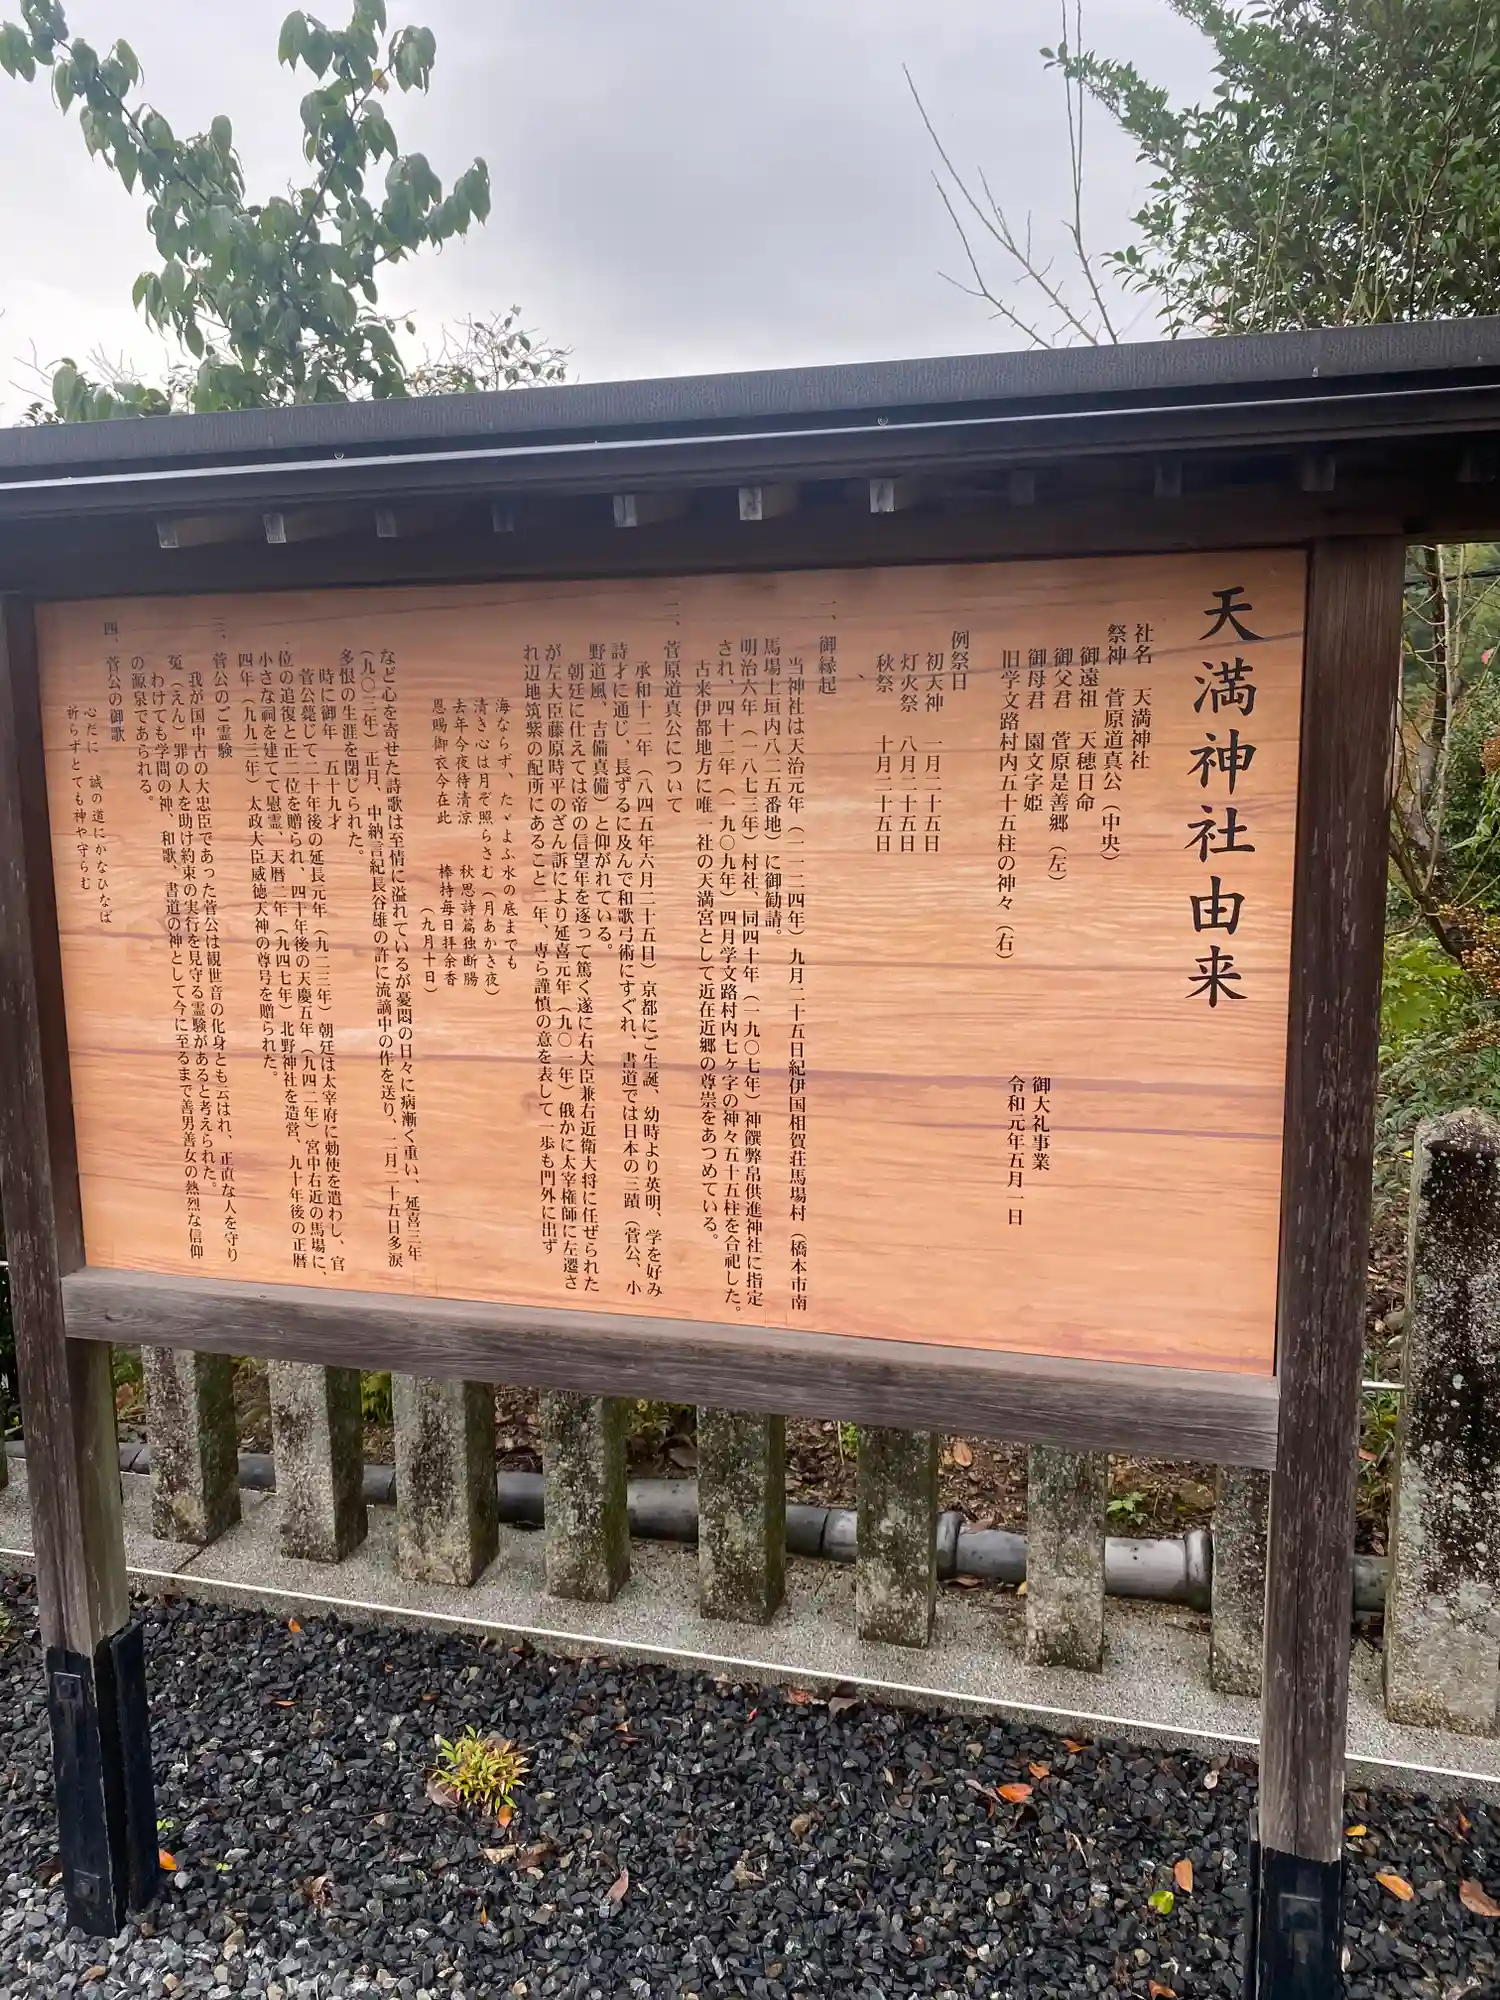 天満神社由来
社名　天満神社
祭神　菅原道真公（中央）
御遠祖　天穂日命
御父君　菅原是善郷（左）
御母君　園文字姫
旧学文路村内五十五柱の神々（右）
御大礼事業
令和元年五月一日
例祭日
初天神　一月二十五日
灯火祭　八月二十五日
秋祭　十月二十五日
一、御縁起
当神社は天治元年（一一二四年）九月二十五日紀伊国相賀荘馬場村（橋本市南
馬場土垣内八二五番地）に御勧請。
明治六年（一八七三年）村社、同四十年（一九〇七年）神饌弊帛供進神社に指定
され、四十二年（一九〇九年）四月学文路村内七ヶ字の神々五十五柱を合祀した。
古来伊都地方に唯一社の天満宮として近在近郷の尊崇をあつめている。
二、菅原道真公について
承和十二年（八四五年六月二十五日）京都にご生誕、幼時より英明、学を好み
詩才に通じ、長ずるに及んで和歌弓術にすぐれ、書道では日本の三蹟（菅公、小
野道風、吉備真備）と仰がれている。
朝廷に仕えては帝の信望年を逐って篤く遂に右大臣兼右近衛大将に任ぜられた
が左大臣藤原時平のざん訴により延喜元年（九〇一年）俄かに太宰権師に左遷さ
れ辺地筑紫の配所にあること二年、専ら謹慎の意を表して一歩も門外に出ず
海ならず、たゞよふ水の底までも
清き心は月ぞ照らさむ（月あかき夜）
去年今夜待清涼　秋思詩篇独断腸
恩賜御衣今在此　棒持毎日拝余香
（九月十日）
など心を寄せた詩歌は至情に溢れているが憂悶の日々に病漸く重い、延喜三年
（九〇三年）正月、中納言紀長谷雄の許に流謫中の作を送り、二月二十五日多涙
多恨の生涯を閉じられた。
時に御年　五十九才
菅公薨じて二十年後の延長元年（九二三年）朝廷は太宰府に勅使を遣わし、官
位の追復と正二位を贈られ、四十年後の天慶五年（九四二年）宮中右近の馬場に、
小さな祠を建てて慰霊、天暦二年（九四七年）北野神社を造営、九十年後の正暦
四年（九九三年）太政大臣威徳天神の尊号を贈られた。
三、菅公のご霊験
我が国中古の大忠臣であった菅公は観世音の化身とも云はれ、正直な人を守り
冤（えん）罪の人を助け約束の実行を見守る霊験があると考えられた。
わけても学問の神、和歌、書道の神として今に至るまで善男善女の熱烈な信仰
の源泉であられる。
四、菅公の御歌
心だに　誠の道にかなひなば
祈らずとても神や守らむ